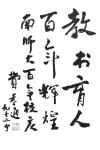 教书育人
百年辉煌
南师大百年校庆
费孝通
九十三岁